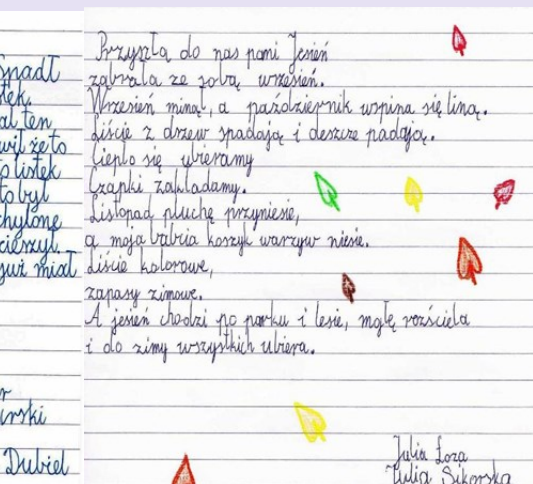 Spadł
ten
to listek
to był
chylone
cieszył.
już miał
Dubiel
Przyszła do nas pani Jesień
zabrała ze sobą wrzesień.
Wrzesień minął, a październik wspina się liną.
Liście z drzew spadają i deszcze padają.
Ciepło się ubieramy
Czapki zakładamy.
Listopad pluchę przyniesie,
a moja babcia koszyk warzyw niesie.
Liście kolorowe,
zapasy zimowe.
A jesień chodzi po parku i lesie, mgłę rozściela
i do zimy wszystkich ubiera.
Julia Loza
Julia Sikorska